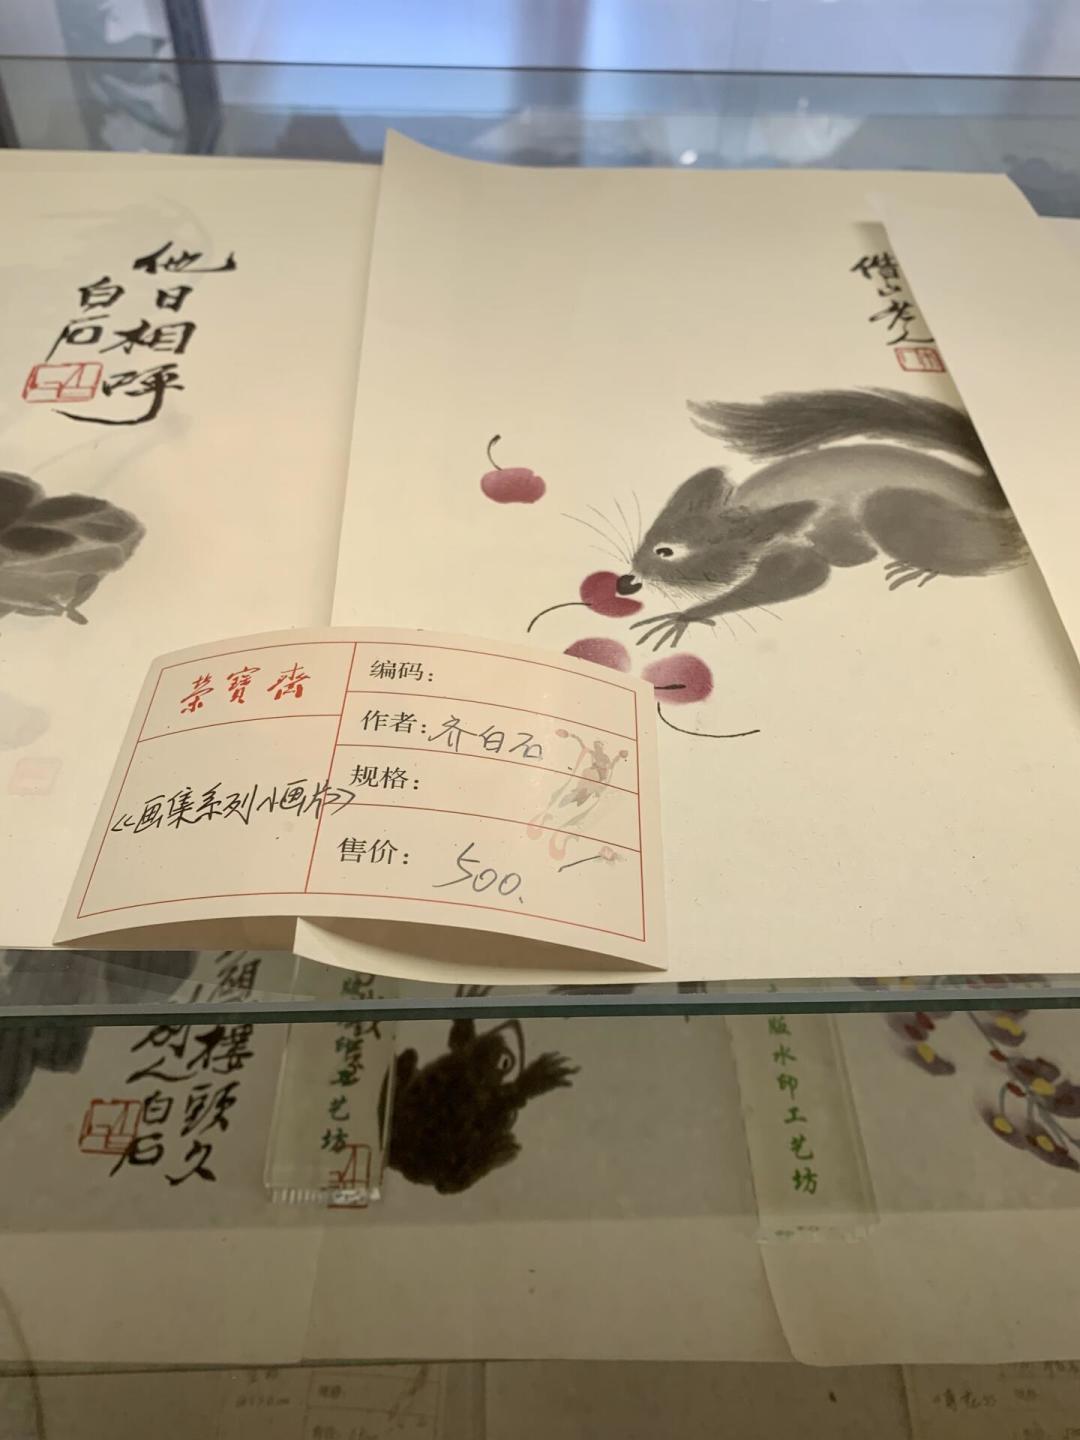 他日相呼
白石
借山老人
荣寳齋
编码：
作者：齐白石
规格：
《画集系列小画片》
售价：500.
樓頭久
别人白石
艺坊
版水印工艺坊